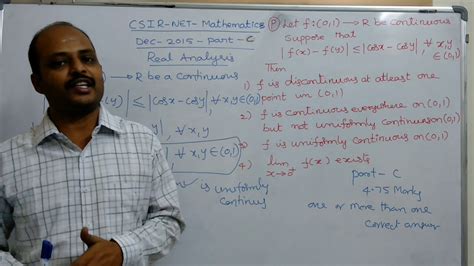 CSIR-NET-Mathematics
Dec-2015-Part-C
Real Analysis
→ R be a Continuous
(y)| ≤ |cosx-cosy|, ∀ x,y ∈ (0,1)
y|, ∀ x,y
∀ x,y ∈ (0,1)
is uniformly
Continuous
(P) Let f:(0,1) → R be continuous
Suppose that
|f(x)-f(y)| ≤ |cosx-cosy|, ∀ x,y
∈ (0,1)
Then
1) f is discontinuous at atleast one
point in (0,1)
2) f is continuous everywhere on (0,1)
but not uniformly continuous on (0,1)
3) f is uniformly continuous on (0,1)
4) lim f(x) exists
x→0⁺
part-C
4.75 Marks
one or more than one
correct answer